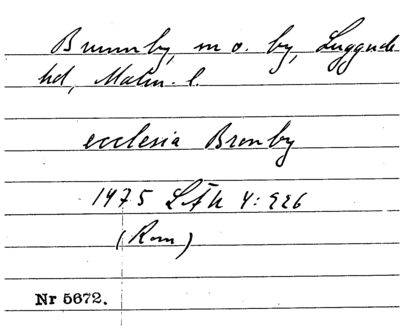 Brunnby, sn o. by, Luggude
hd, Malm. l.
ecclesia Bronby
1475 LÄU 4: 226
(Rom)
Nr 5672.